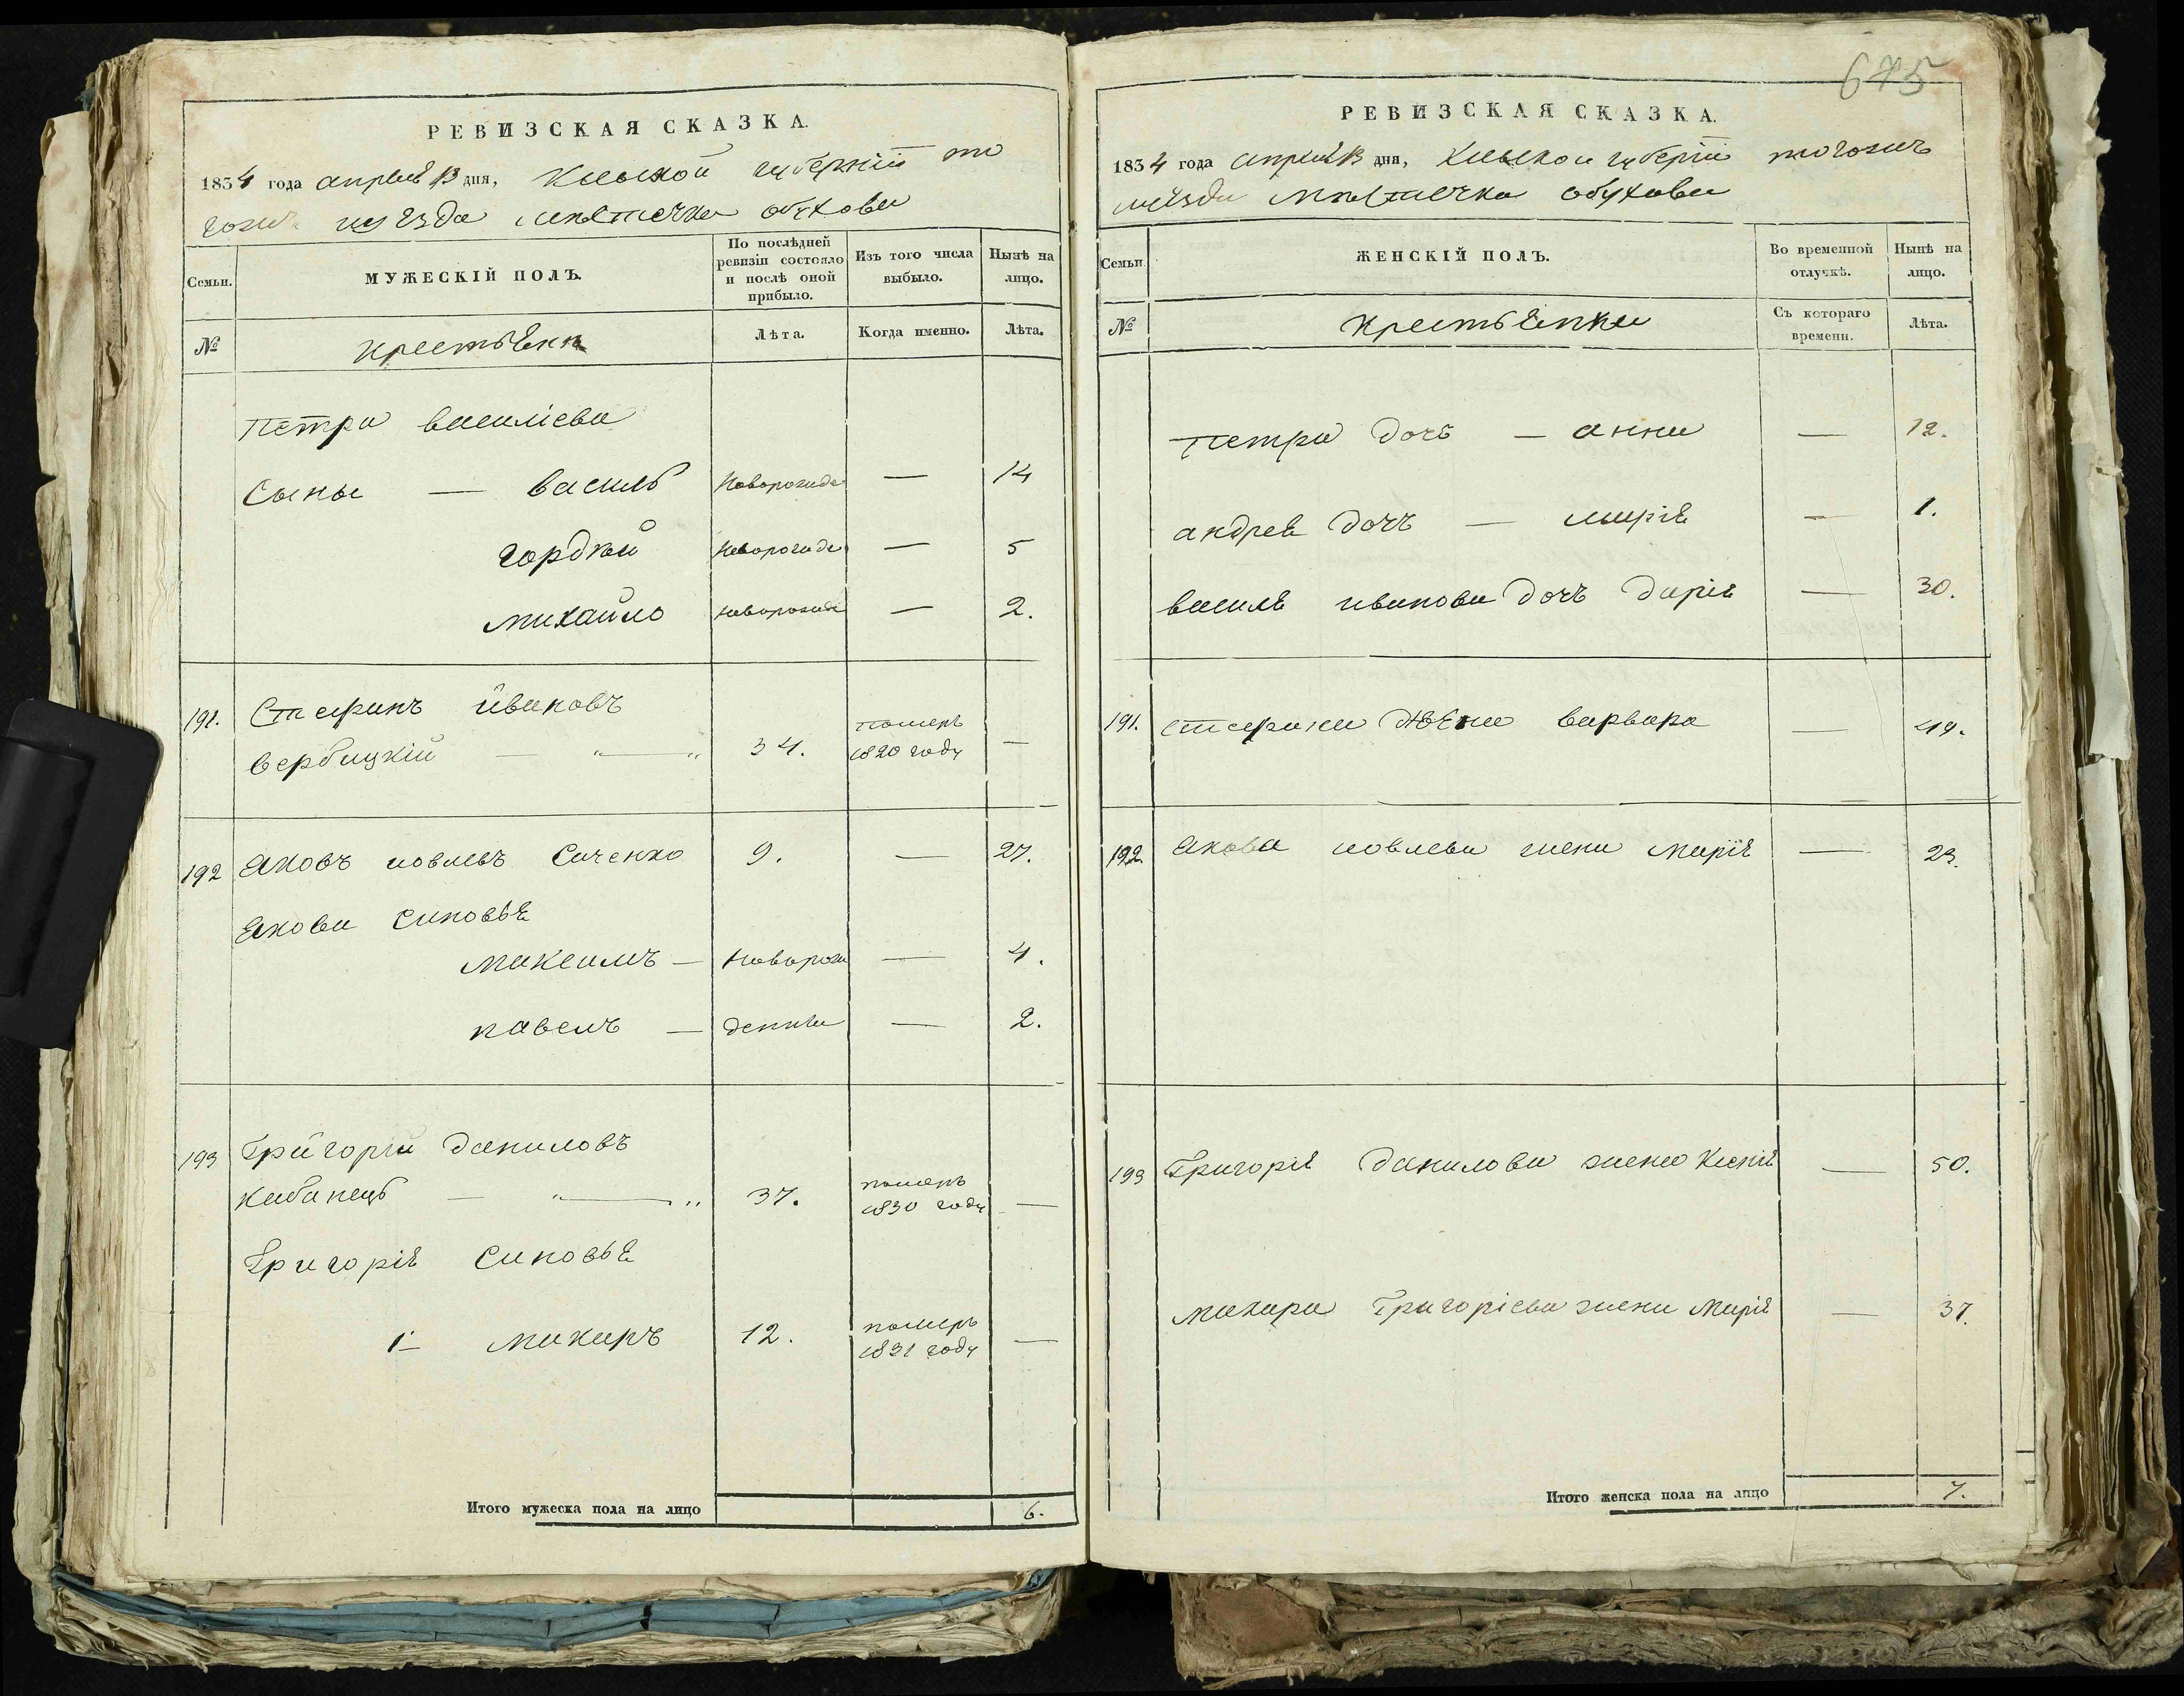 РЕВИЗСКАЯ СКАЗКА.
1834 года апреля 13 дня, Киевской губернiи то
гожъ уезда местечка обухова
Семьи.
МУЖЕСКІЙ ПОЛЪ.
По послѣдней ревизіи состояло и послѣ оной прибыло.
Изъ того числа выбыло.
Нынѣ на лицо.
№
крестьяне
Лѣта.
Когда именно.
Лѣта.
Петра василіева
Сыны — василь новорожде — 14
гордѣй новорожде — 5
михайло новорожде — 2.
191. Стефанъ ивановъ
вербицкій — " — " 34. померъ 1820 году —
192 Яковъ иовлевъ Саченко 9. — 27.
Якова синовья
максимъ — новорож — 4.
павелъ — денни — 2.
193 Григорій даниловъ
кабанець — " — " 37. померъ 1830 году —
Григорія синовья
1 макаръ 12. померъ 1831 году —
Итого мужеска пола на лицо 6.
675
РЕВИЗСКАЯ СКАЗКА.
1834 года апреля 13 дня, Киевской губерiи тогожъ
уезда местечка обухова
Семьи
ЖЕНСКІЙ ПОЛЪ.
Во временной отлучкѣ.
Нынѣ на лицо.
№
крестьянки
Съ котораго времени.
Лѣта.
Петра дочь — анна — 12.
андрея дочъ — марія — 1.
василя иванова дочъ дарія — 30.
191. стефана жена варвара — 49.
192. Якова иовлева жена марія — 23.
193 Григорія данилова жена Ксенія — 50.
макара Григоріева жена марія — 37.
Итого женска пола на лицо 7.